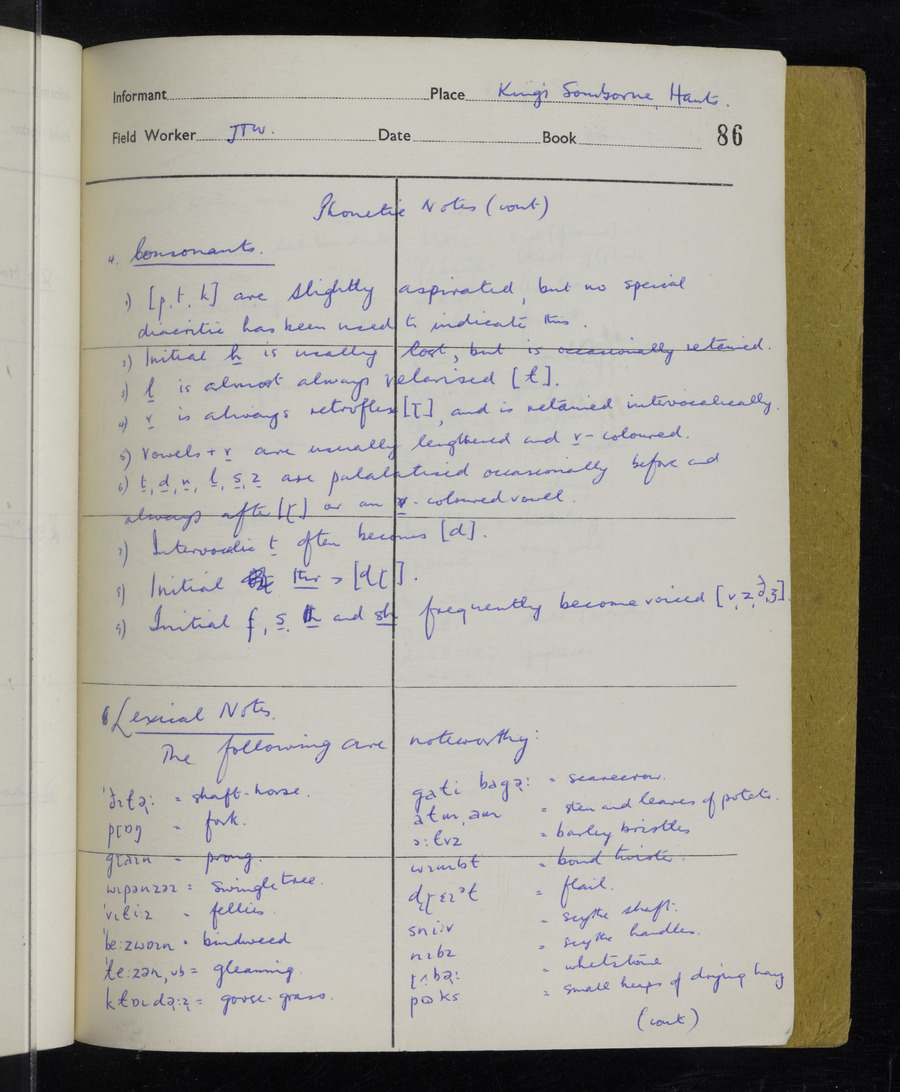 Informant Place King's Somborne, Hants.
Field Worker JTW. Date Book 86
Phonetic Notes (cont)
4. Consonants.
1) [p, t, k] are slightly aspirated, but no special
diacritic has been used to indicate this.
2) Initial h is usually lost, but is occasionally retained.
3) l is almost always velarised [ɫ].
4) r is always retroflex [ɽ], and is retained intervocalically.
5) Vowels + r are usually lengthened and r-coloured.
6) t, d, n, l, s, z are palatalised occasionally before and
always after [ɽ] or an r-coloured vowel.
7) Intervocalic t often becomes [d].
8) Initial thr > [dɽ].
9) Initial f, s, th and sh frequently become voiced [v, z, ð, ʒ].
Lexical Notes.
The following are noteworthy:
= shaft-horse.
= fork.
= prong.
= swingle tree.
= fellies.
= bindweed
= gleaning.
= goose-grass.
= scarecrow.
= stem and leaves of potato.
= barley bristles
= bond twister.
= flail.
sni:v = scythe shaft.
nɪbz = scythe handles.
= whetstone
= small heaps of drying hay
(cont)